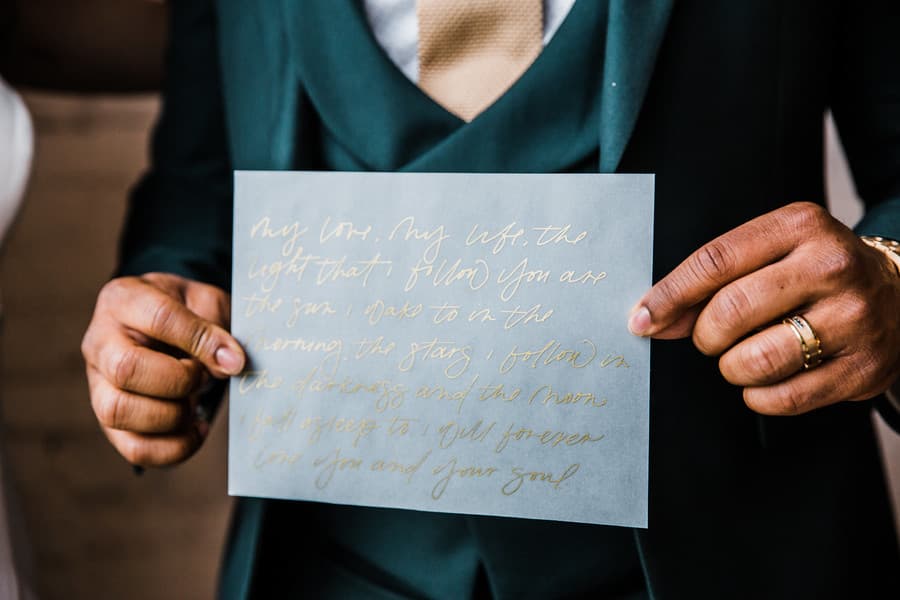 My love, My life, the
light that i follow you are
the sun i wake to in the
morning, the stars i follow in
the darkness and the moon
i fall asleep to i will forever
love you and your soul